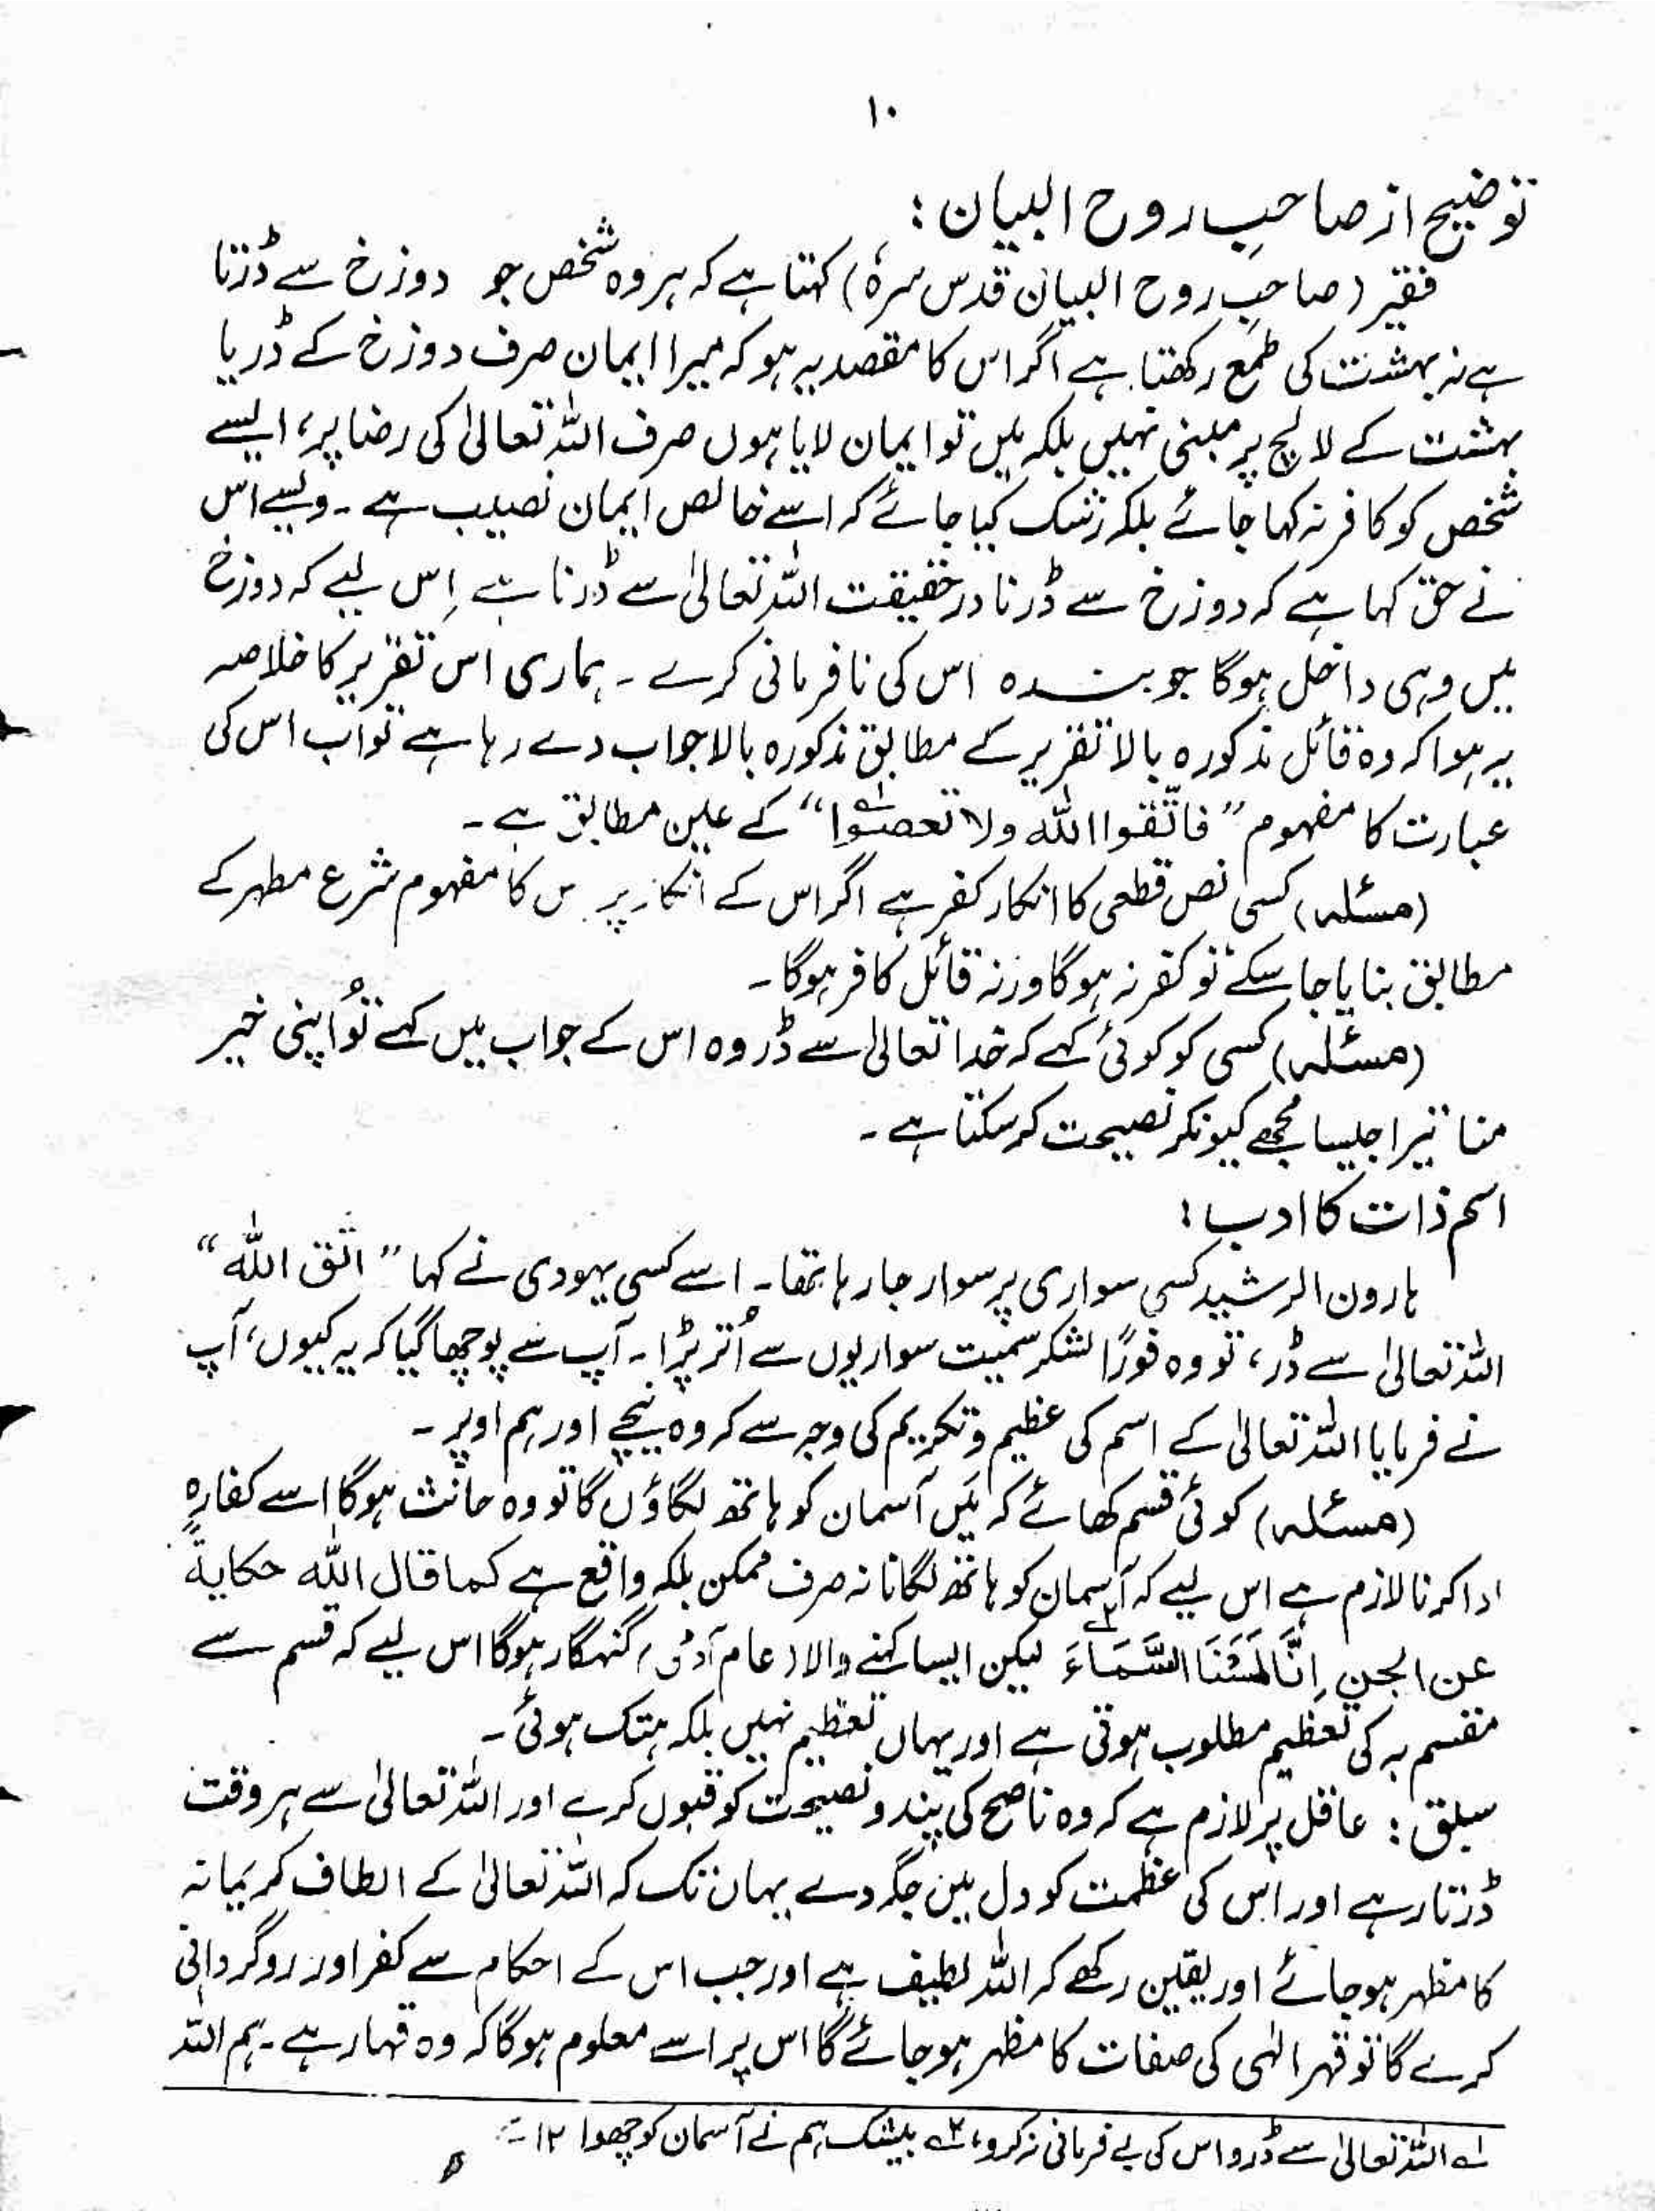 ۱۰
توضیح از صاحبِ روح البیان :
فقیر (صاحبِ روح البیان قدس سرہٗ) کہتا ہے کہ ہر وہ شخص جو دوزخ سے ڈرتا
ہے نہ بہشت کی طمع رکھتا ہے اگر اس کا مقصد یہ ہو کہ میرا ایمان صرف دوزخ کے ڈر یا
بہشت کے لالچ پر مبنی نہیں بلکہ میں تو ایمان لایا ہوں صرف اللہ تعالیٰ کی رضا پر، ایسے
شخص کو کافر نہ کہا جائے بلکہ رشک کیا جائے کہ اسے خالص ایمان نصیب ہے ۔ ویسے اس
نے حق کہا ہے کہ دوزخ سے ڈرنا درحقیقت اللہ تعالیٰ سے ڈرنا ہے اِس لیے کہ دوزخ
میں وہی داخل ہوگا جو بندہ اس کی نافرمانی کرے ۔ ہماری اس تقریر کا خلاصہ
یہ ہوا کہ وہ قائل مذکورہ بالا تقریر کے مطابق مذکورہ بالا جواب دے رہا ہے تو اب اس کی
عبارت کا مفہوم ”فاتّقوا اللہ ولا تعصوا“ ۱ے کے عین مطابق ہے ۔
(مسئلہ) کسی نص قطعی کا انکار کفر ہے اگر اس کے انکار پر س کا مفہوم شرع مطہر کے
مطابق بنایا جا سکے تو کفر نہ ہوگا ورنہ قائل کافر ہوگا ۔
(مسئلہ) کسی کو کوئی کہے کہ خدا تعالیٰ سے ڈر وہ اس کے جواب میں کہے تُو اپنی خیر
منا تیرا جیسا مجھے کیونکر نصیحت کر سکتا ہے ۔
اسم ذات کا ادب :
ہارون الرشید کسی سواری پر سوار جا رہا تھا ۔ اسے کسی یہودی نے کہا ”اتق اللہ“
اللہ تعالیٰ سے ڈر، تو وہ فورًا لشکر سمیت سواریوں سے اُتر پڑا ۔ آپ سے پوچھا گیا کہ یہ کیوں، آپ
نے فرمایا اللہ تعالیٰ کے اسم کی عظیم و تکریم کی وجہ سے کہ وہ نیچے اور ہم اوپر ۔
(مسئلہ) کوئی قسم کھائے کہ میَں آسمان کو ہاتھ لگاؤں گا تو وہ حانث ہوگا اسے کفارہ
ادا کرنا لازم ہے اس لیے کہ آسمان کو ہاتھ لگانا نہ صرف ممکن بلکہ واقع ہے کما قال اللہ حکایۃً
عن الجن اِنَّا لَمَسْنَا السَّمَاءَ ۲ے لیکن ایسا کہنے والا (عام آدمی) گنہگار ہوگا اس لیے کہ قسم سے
مقسم بہ کی تعظیم مطلوب ہوتی ہے اور یہاں تعظیم نہیں بلکہ ہتک ہوئی ۔
سبق : عاقل پر لازم ہے کہ وہ ناصح کی پند و نصیحت کو قبول کرے اور اللہ تعالیٰ سے ہر وقت
ڈرتا رہے اور اس کی عظمت کو دل میں جگہ دے یہاں تک کہ اللہ تعالیٰ کے الطاف کریمانہ
کا مظہر ہو جائے اور یقین رکھے کہ اللہ لطیف ہے اور جب اس کے احکام سے کفر اور روگردانی
کرے گا تو قہر الٰہی کی صفات کا مظہر ہو جائے گا اس پر اسے معلوم ہوگا کہ وہ قہار ہے ۔ ہم اللہ
۱ے اللہ تعالیٰ سے ڈرو اس کی بے فرمانی نہ کرو، ۲ے بیشک ہم نے آسمان کو چھوا ۱۲